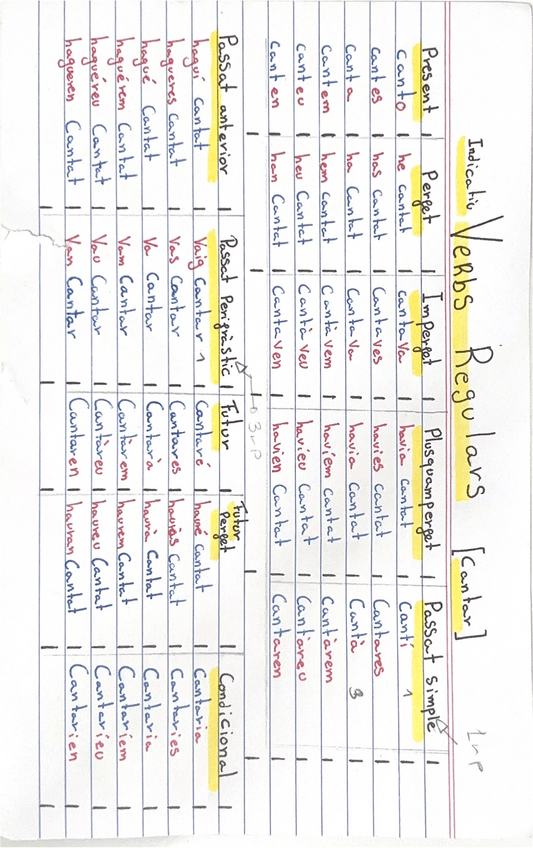 Indicatiu Verbs Regulars [Cantar]
1rp
Present | Perfet | Imperfet | Plusquamperfet | Passat simple
canto | he cantat | cantava | havia cantat | Cantí 1
cantes | has cantat | Cantaves | havies cantat | Cantares
canta | ha Cantat | Cantava | havia Cantat | Cantà 3
cantem | hem Cantat | Cantàvem | havíem Cantat | Cantàrem
canteu | heu Cantat | Cantàveu | havíeu Cantat | Cantàreu
canten | han Cantat | Cantaven | havien Cantat | Cantaren
3rp
Passat anterior | Passat Perifràstic | Futur | Futur perfet | Condicional
haguí Cantat | Vaig Cantar 1 | Cantaré | hauré Cantat | Cantaria
hagueres Cantat | Vas Cantar | Cantares | hauràs Cantat | Cantaries
hagué Cantat | Va Cantar | Cantarà | haurà Cantat | Cantaria
haguérem Cantat | Vam Cantar | Cantàrem | haurem Cantat | Cantaríem
haguéreu Cantat | Vau Cantar | Cantàreu | haureu Cantat | Cantaríeu
hagueren Cantat | Van Cantar | Cantaren | hauran Cantat | Cantarien